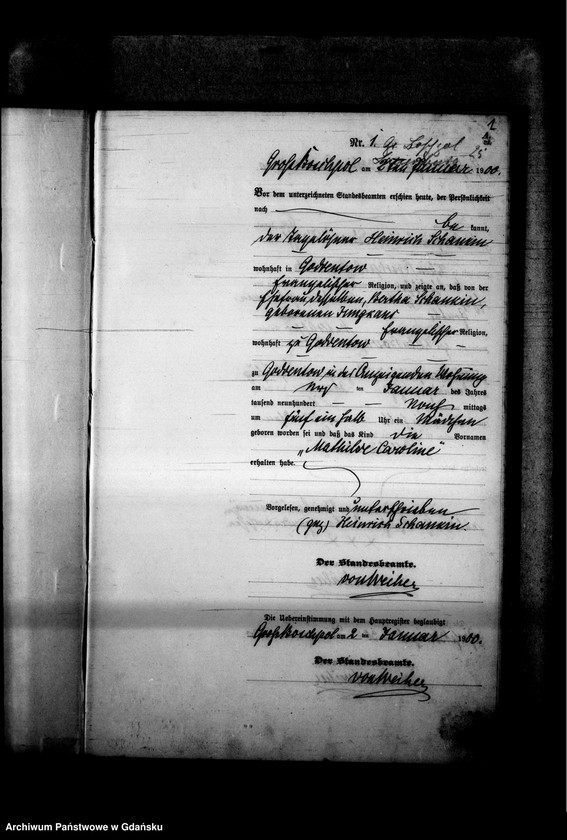 1
Nr. 1.
Groß Boschpol am 2ten Januar 1900.
Vor dem unterzeichneten Standesbeamten erschien heute, der Persönlichkeit
nach
be kannt,
der Tagelöhner Heinrich Schankin
wohnhaft in Goddentow
evangelischer Religion, und zeigte an, daß von der
Ehefrau desselben, Bertha Schankin,
geborenen Jungkans
evangelischer Religion,
wohnhaft zu Goddentow
zu Goddentow in des Anzeigenden Wohnung
am ten Januar des Jahres
tausend neunhundert Nach mittags
um fünf ein halb Uhr ein Mädchen
geboren worden sei und daß das Kind die Vornamen
„Mathilde Caroline"
erhalten habe.
Vorgelesen, genehmigt und unterschrieben
(gez) Heinrich Schankin.
Der Standesbeamte.
von Weiher
Die Uebereinstimmung mit dem Hauptregister beglaubigt
Groß Boschpol am 2 ten Januar 1900.
Der Standesbeamte.
von Weiher
Archiwum Państwowe w Gdańsku